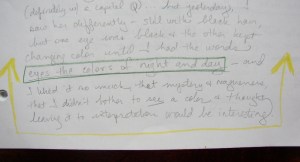 (definitely w/ a capital Q)... but yesterday, I
saw her differently - still with black hair,
but one eye was black & the other kept
changing color until I had the words
eyes the colors of night and day - and
I liked it so much, that mystery & vagueness,
that I didn't bother to see a color & thought
leaving it to interpretation would be interesting.